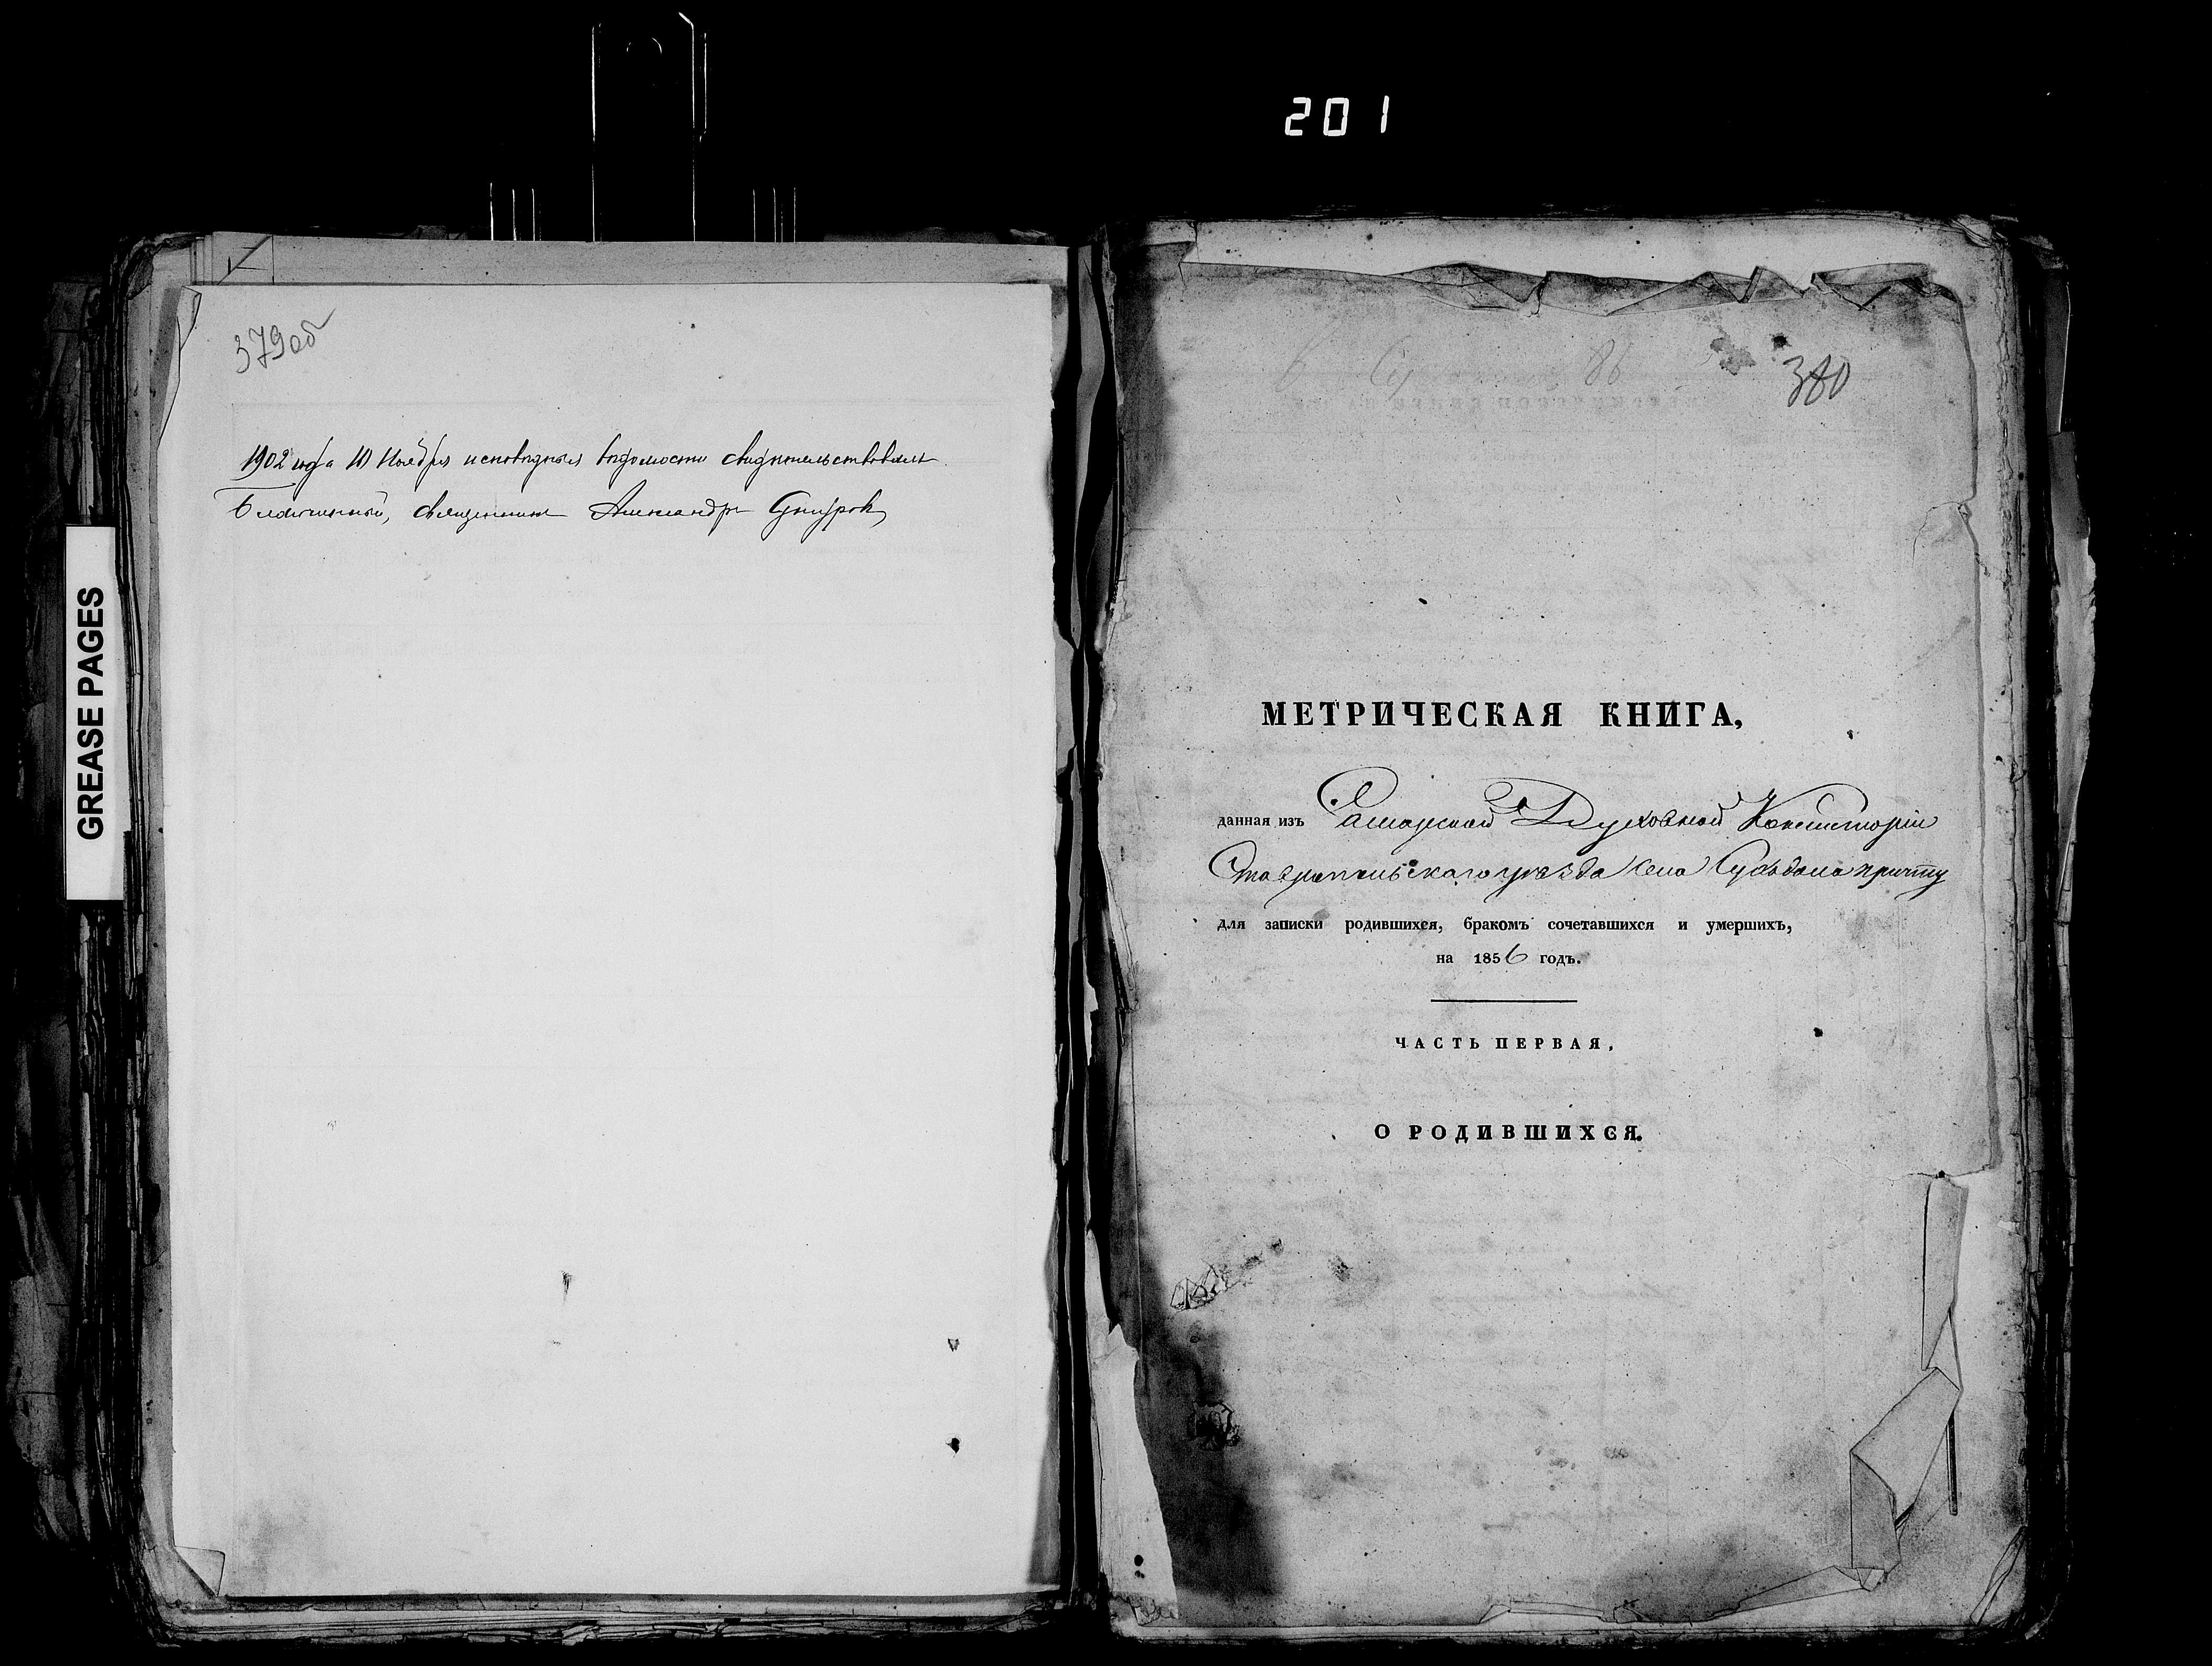 201
379об
1902 года 10 Ноября исповедныя ведомости свидетельствовалъ
Благочинный, священникъ Александръ
GREASE PAGES
380
МЕТРИЧЕСКАЯ КНИГА,
данная изъ Самарской Духовной Консисторіи
Ставропольскаго уезда села причту
для записки родившихся, бракомъ сочетавшихся и умершихъ,
на 1856 годъ.
ЧАСТЬ ПЕРВАЯ.
О РОДИВШИХСЯ.